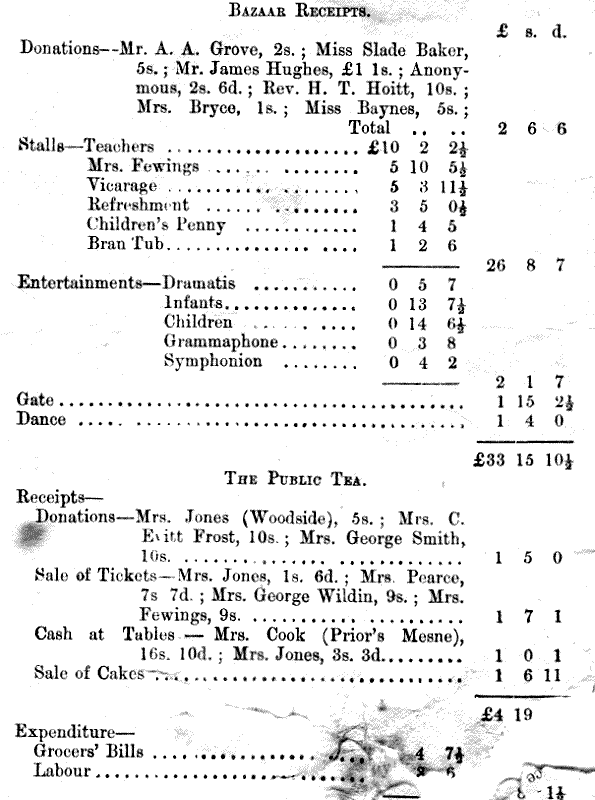 BAZAAR RECEIPTS.
£ s. d.
Donations--Mr. A. A. Grove, 2s. ; Miss Slade Baker,
5s. ; Mr. James Hughes, £1 1s. ; Anony-
mous, 2s. 6d. ; Rev. H. T. Hoitt, 10s. ;
Mrs. Bryce, 1s. ; Miss Baynes, 5s. ;
Total .. .. 2 6 6
Stalls—Teachers .................... £10 2 2½
Mrs. Fewings ...... ........ 5 10 5½
Vicarage .................... 5 3 11½
Refreshment ...... .......... 3 5 0½
Children's Penny ............ 1 4 5
Bran Tub.............. .... 1 2 6
26 8 7
Entertainments—Dramatis ........... 0 5 7
Infants.............. 0 13 7½
Children ..... .... .... 0 14 6½
Grammaphone........ 0 3 8
Symphonion ........ 0 4 2
2 1 7
Gate............................................ 1 15 2½
Dance .... .................................... 1 4 0
£33 15 10½
THE PUBLIC TEA.
Receipts—
Donations—Mrs. Jones (Woodside), 5s. ; Mrs. C.
Evitt Frost, 10s. ; Mrs. George Smith,
10s. ............................ 1 5 0
Sale of Tickets—Mrs. Jones, 1s. 6d. ; Mrs. Pearce,
7s 7d. ; Mrs. George Wildin, 9s. ; Mrs.
Fewings, 9s. ..................... 1 7 1
Cash at Tables — Mrs. Cook (Prior's Mesne),
16s. 10d. ; Mrs. Jones, 3s. 3d......... 1 0 1
Sale of Cakes ................................ 1 6 11
£4 19
Expenditure—
Grocers' Bills .......................... 4 7½
Labour................................
1½